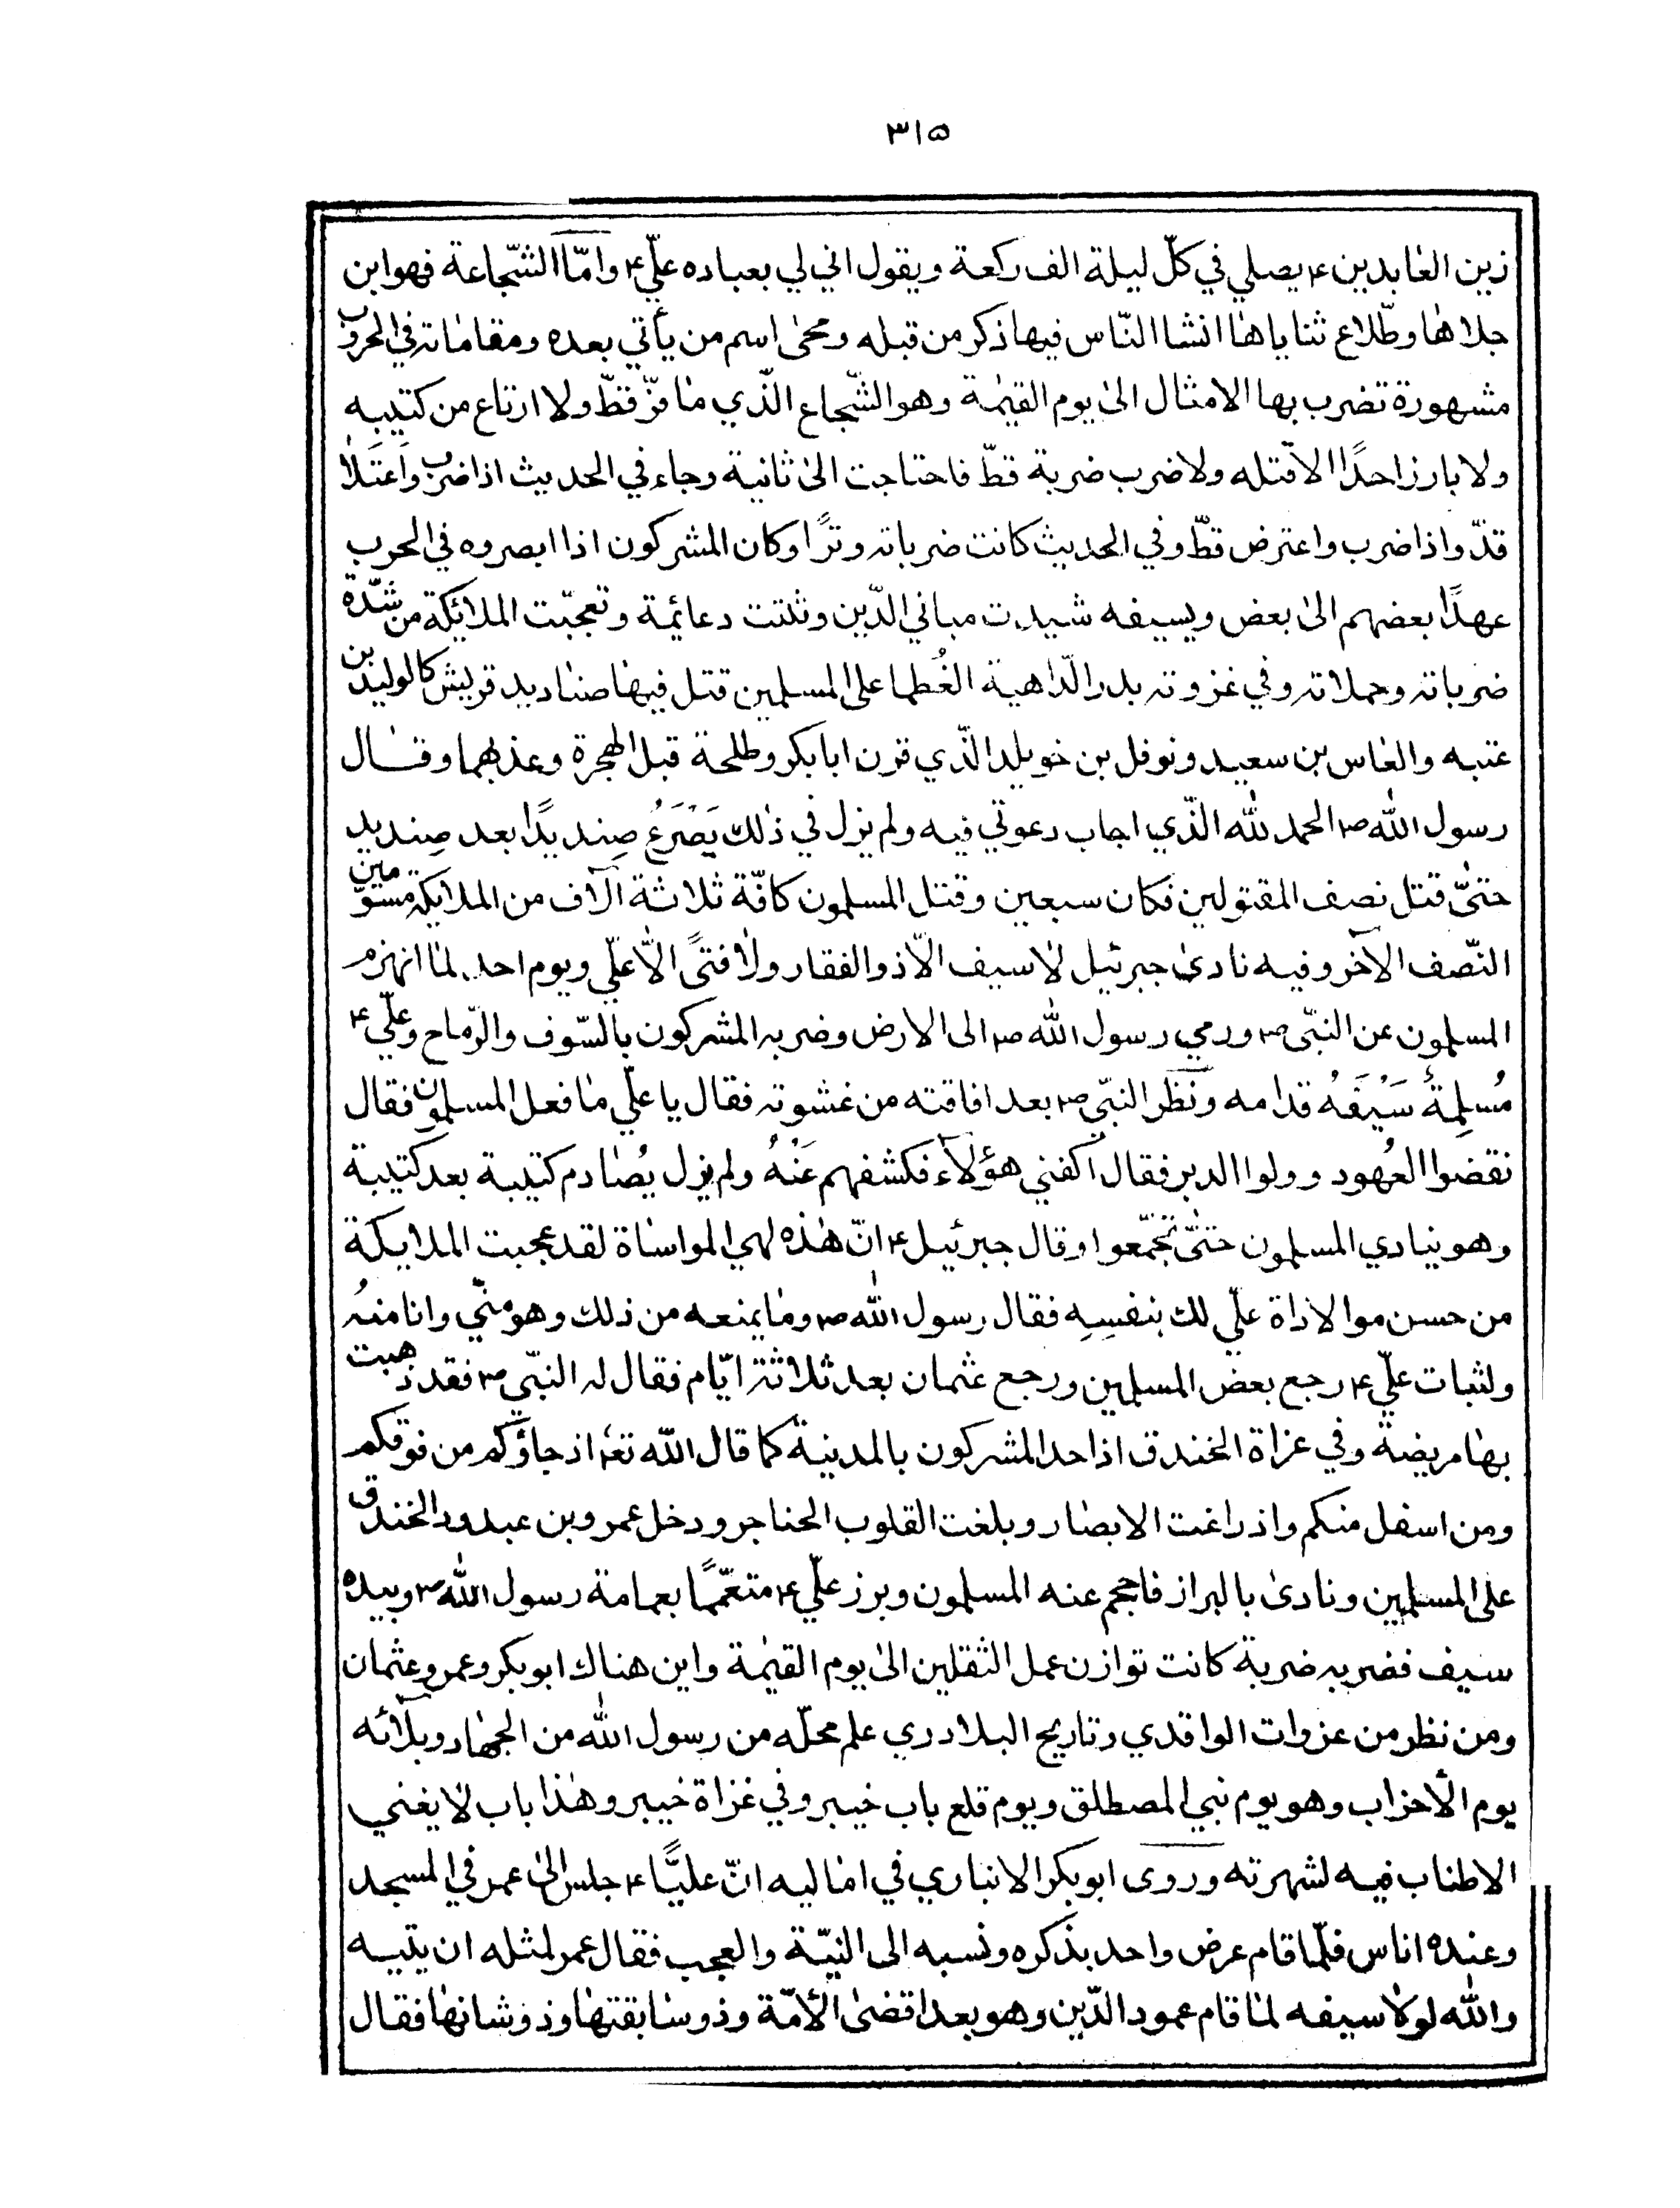 ٣١٥
زين العابدين ع يصلي في كلّ ليلة الف ركعة ويقول اني لي بعباده علّي ع وامّا الشّجاعة فهو ابن
جلاها وطّلاع ثناياها انشا النّاس فيها ذكر من قبله ومحى اسم من يأتي بعده ومقاماته في الحروب
مشهورة تضرب بها الامثال الى يوم القيٰمة وهو الشّجاع الّذي ما فرّ قطّ ولا ارتاع من كتيبه
ولا بارز احدًا الا قتله ولا ضرب ضربة قطّ فاحتاجت الى ثانية وجاء في الحديث اذا ضرب واعتلا
قدّ واذا ضرب واعترض قطّ وفي الحديث كانت ضرباته وترًا وكان المشركون اذا ابصروه في الحرب
عهدًا بعضهم الى بعض وبسيفه شيدت مباني الدّين وثلتت دعائمة وتعجبّت الملائكة من شدّة
ضرباته وحملاته وفي غزوته بدر الدّاهية العُظما على المسلمين قتل فيها صناديد قريش كالوليد بن
عتبه والعاس بن سعيد ونوفل بن خويلد الذّي قرن ابابكر وطلحة قبل الهجرة وعذبهما وقال
رسول الله ص الحمد لله الّذي اجاب دعوتي فيه ولم يزل في ذلك يَصْرَعُ صِنديدًا بعد صِنديد
حتىّ قتل نصف المقتولين فكان سبعين وقتل المسلمون كافّة ثلاثة آلاف من الملايكة مسوّمين
النّصف الآخر وفيه نادى جبرئيل لا سيف الّا ذو الفقار ولا فتىً الّا علّي ويوم احد لما انهزم
المسلمون عن النبّى ص ورمي رسول الله ص الى الارض وضربه المشركون بالسّوف والرّماح وعلّي ع
مُسلِمةُ سَيْفَهُ قدامه ونظر النبّي ص بعد افاقته من غشوته فقال يا علّي ما فعل المسلمون فقال
نقضوا العُهود وولوا الدبر فقال اكفني هؤلاء فكشفهم عَنْهُ ولم يزل يُصادم كتيبة بعد كتيبة
وهو ينادي المسلمون حتىّ تجمّعوا وقال جبرئيل ع انّ هٰذه لهي المواساة لقد عجبت الملايكة
من حسن موالاداة علّي لك بنفسِهِ فقال رسول الله ص وما يمنعه من ذلك وهو منّي وانا منهُ
ولثبات علّي ع رجع بعض المسلمين ورجع عثمان بعد ثلاثة ايّام فقال له النبّي ص فقد ذهبت
بها مريضة وفي غزاة الخندق اذا حد المشركون بالمدينة كما قال الله تع اذ جاؤكم من فوقكم
ومن اسفل منكم واذ راغت الابصار وبلغت القلوب الحناجر ودخل عمرو بن عبدود الخندق
على المسلمين ونادى بالبراز فاجحم عنه المسلمون وبرز علّي ع متعمّمًا بعمامة رسول الله ص وبيده
سيف فضربه ضربة كانت توازن عمل الثقلين الى يوم القيٰمة واين هناك ابوبكر وعمر وعثمان
ومن نظر من عزوات الواقدي وتاريخ البلادري علم محلّه من رسول الله من الجهاد وبلائه
يوم الأحزاب وهو يوم نبي المصطلق ويوم قلع باب خيبر وفي غزاة خيبر وهٰذا باب لا يغني
الاطناب فيه لشهرته وروى ابوبكر الانباري في اماليه انّ عليًّا ع جلس الى عمر في المسجد
وعنده اناس فلّما قام عرض واحد بذكره ونسبه الى النيّة والعجب فقال عمر لمثله ان يتيه
والله لولا سيفه لما قام عمود الدّين وهو بعد اقضى الأمّة وذو سابقتها وذو شانها فقال